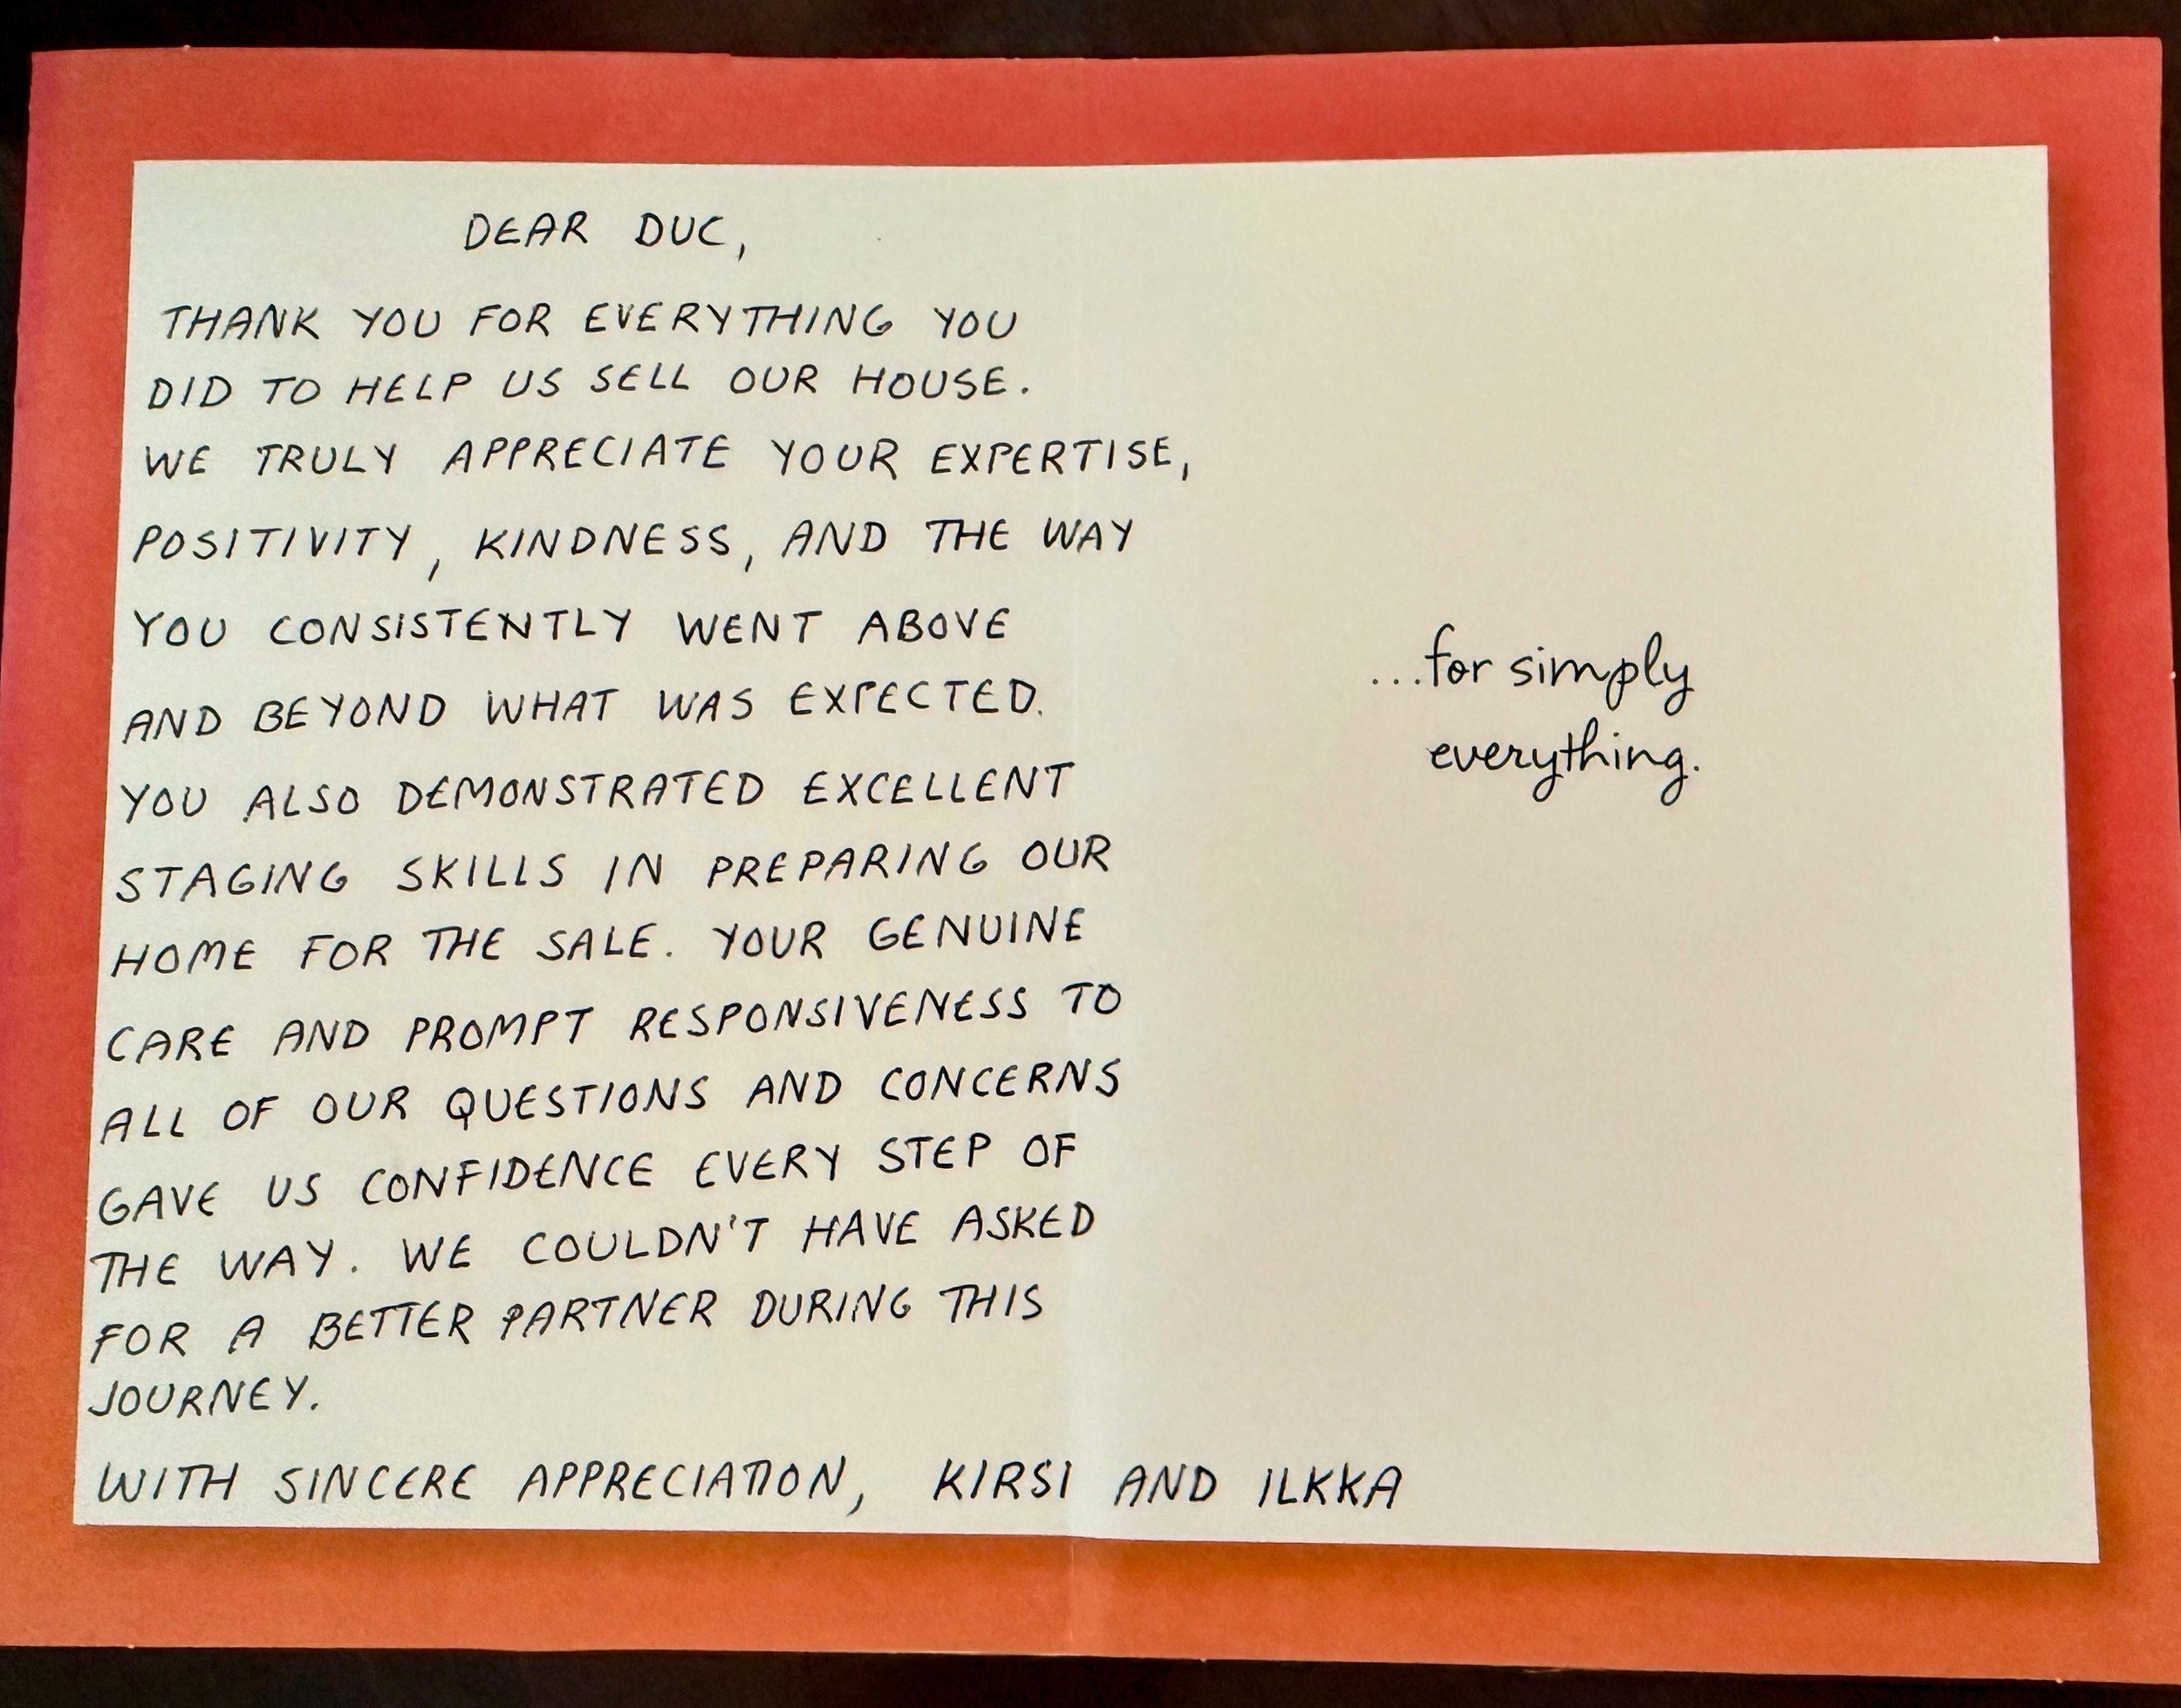 DEAR DUC,
THANK YOU FOR EVERYTHING YOU
DID TO HELP US SELL OUR HOUSE.
WE TRULY APPRECIATE YOUR EXPERTISE,
POSITIVITY, KINDNESS, AND THE WAY
YOU CONSISTENTLY WENT ABOVE
AND BEYOND WHAT WAS EXPECTED.
YOU ALSO DEMONSTRATED EXCELLENT
STAGING SKILLS IN PREPARING OUR
HOME FOR THE SALE. YOUR GENUINE
CARE AND PROMPT RESPONSIVENESS TO
ALL OF OUR QUESTIONS AND CONCERNS
GAVE US CONFIDENCE EVERY STEP OF
THE WAY. WE COULDN'T HAVE ASKED
FOR A BETTER PARTNER DURING THIS
JOURNEY.
WITH SINCERE APPRECIATION, KIRSI AND ILKKA
...for simply
everything.